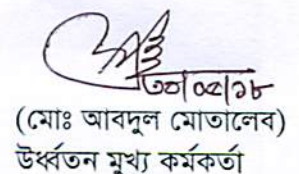 ৩০|০৫|১৮
(মোঃ আবদুল মোতালেব)
উর্ধ্বতন মুখ্য কর্মকর্তা